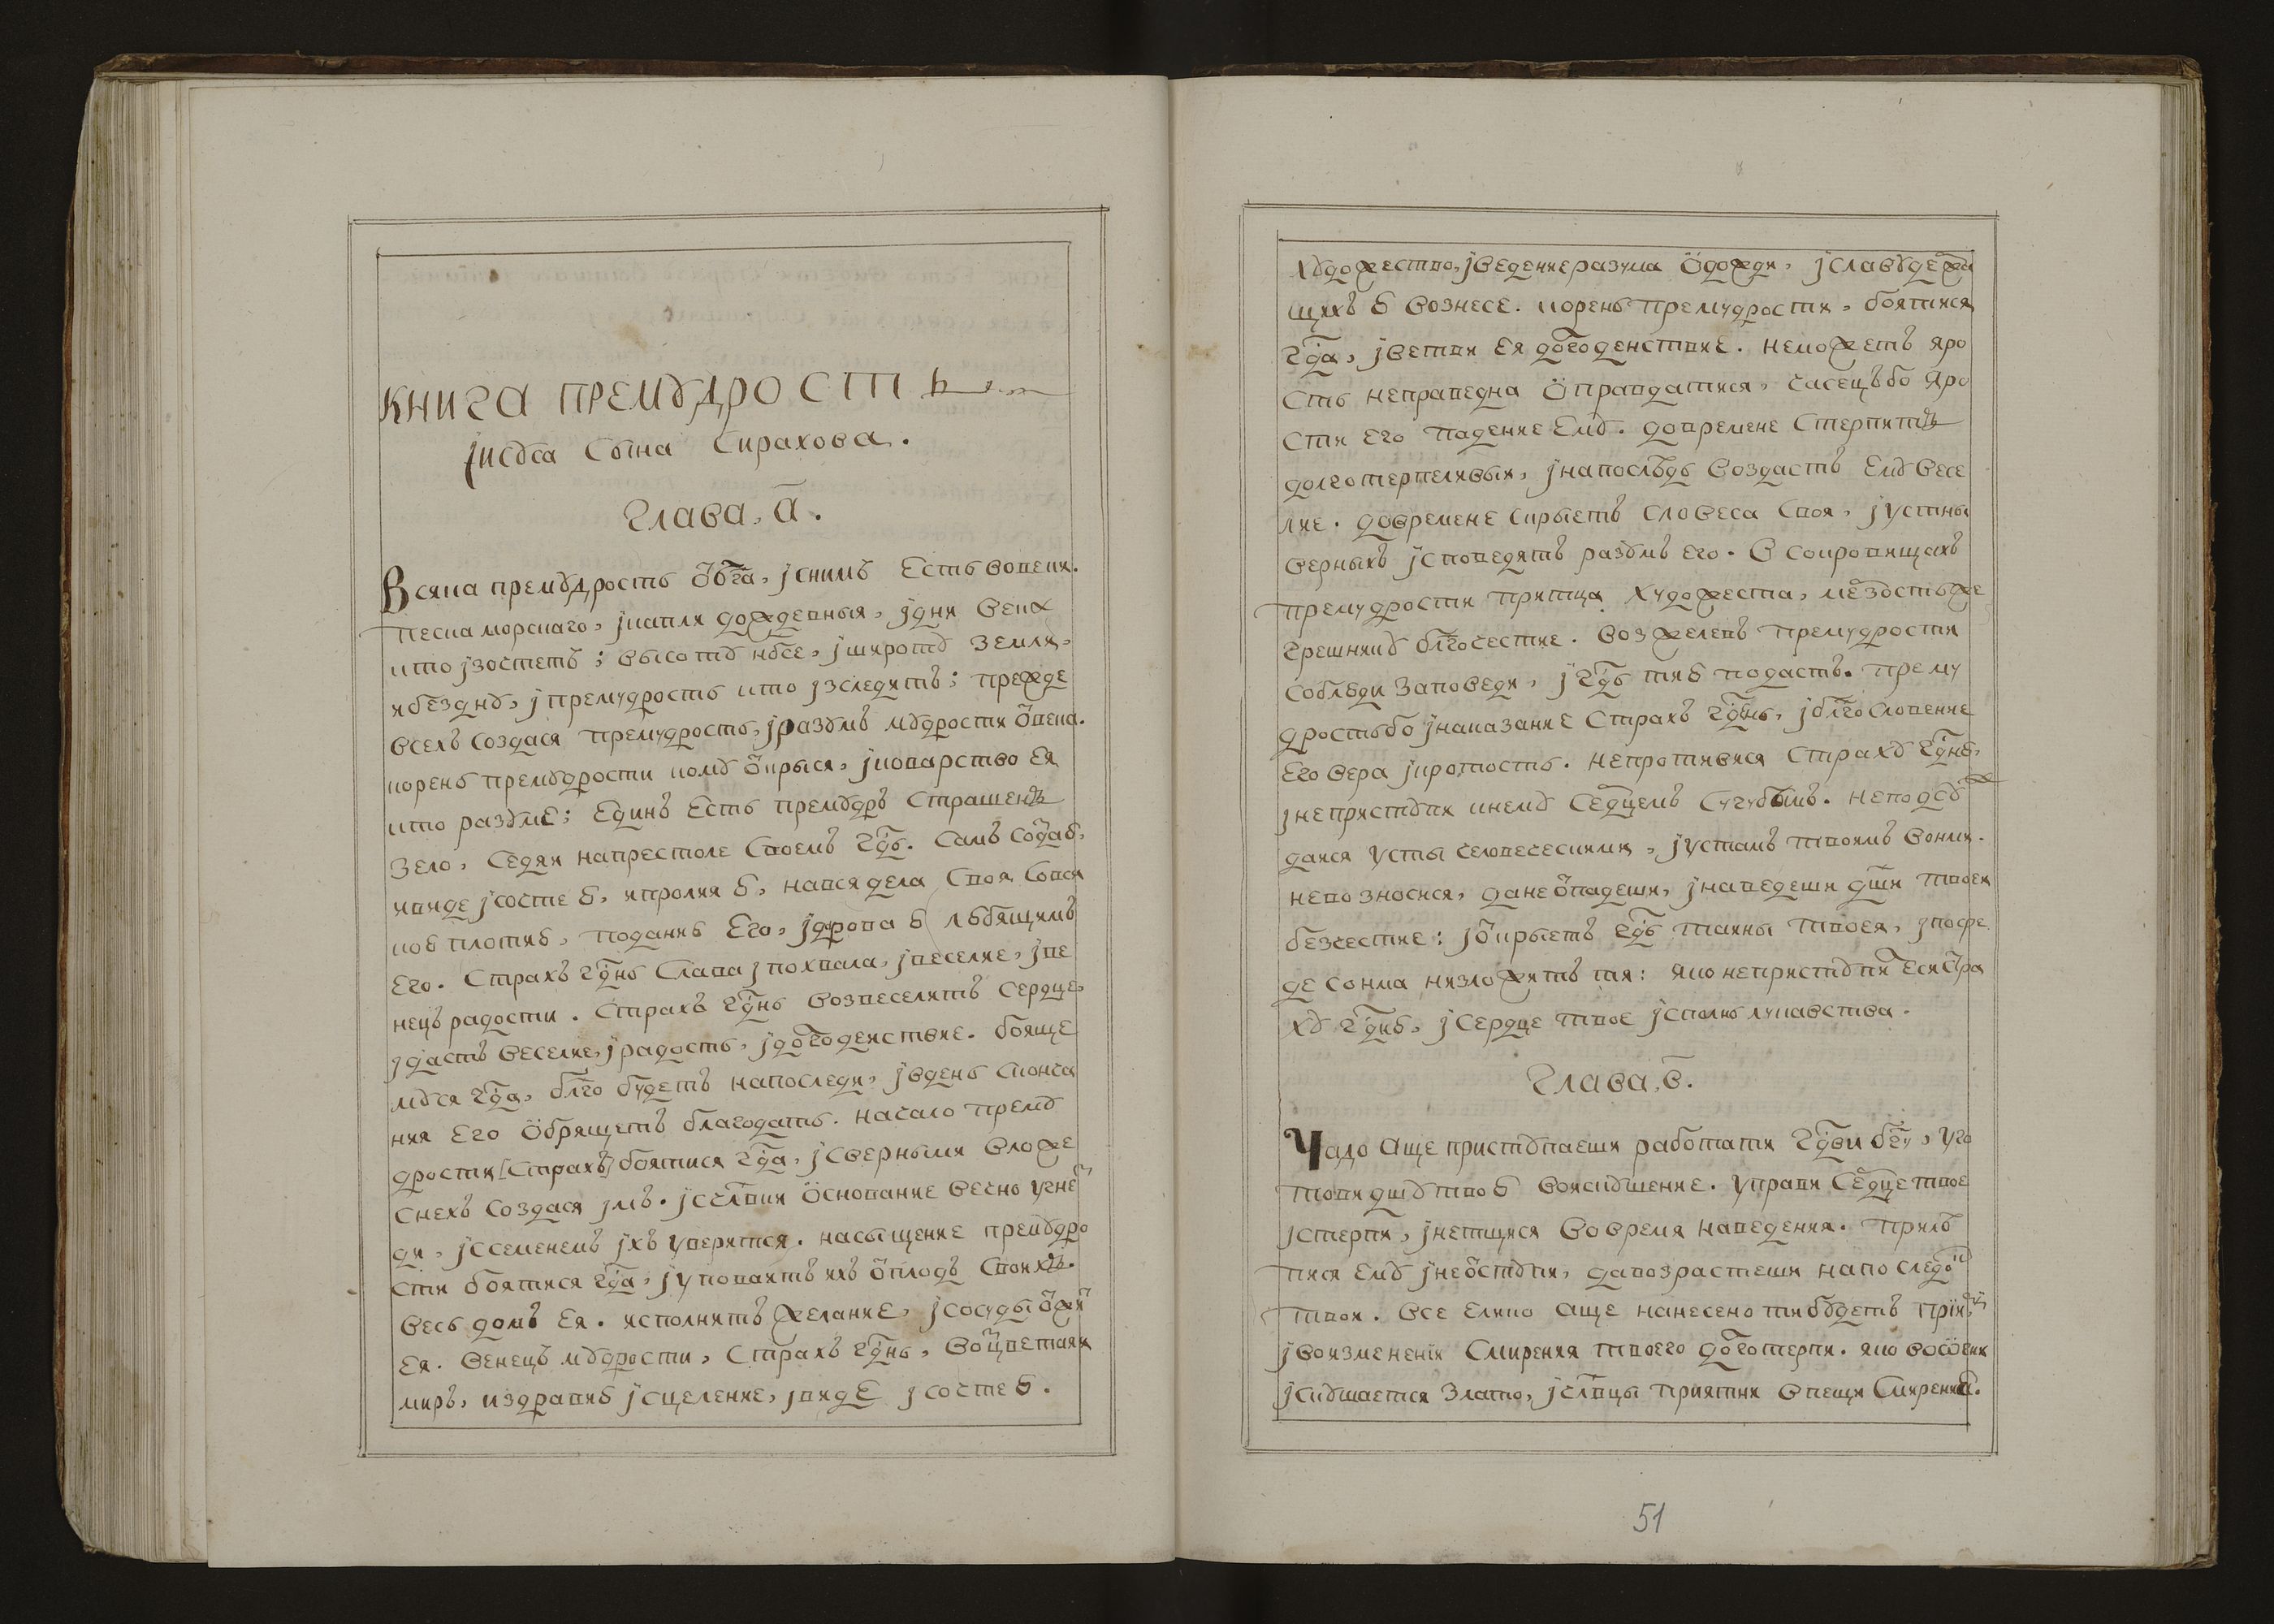 КНИГА ПРЕМꙊДРОСТЬ
Јисꙋса Сына Сирахова.
Глава, а҃.
Всяка премꙋдрость ѿ бг҃а, јснимъ Есть вовеки.
песка морскаго, јкапли дождевныя, јдни века
кто јзочтетъ; высотꙋ нб҃се, јширотꙋ земли,
ибезднꙋ, јпремудрость кто јзследитъ; прежде
всехъ создася премудрость, јразꙋмъ мꙋдрости ѿвека.
корень премꙋдрости комꙋ ѿкрыся, јковарство Ея
кто разꙋме; Единъ Есть премꙋдръ страшенъ
зело, седяи напрестоле своемъ гд҃ь. самъ созда ю,
ивиде јсочте ю, ипролия ю, нався дела своя совся
кою плотию, поданию Его, јдарова ю любящимъ
Его. страхъ гд҃нь слава јпохвала, јвеселие, јве
нецъ радости. страхъ гд҃нь возвеселитъ сердце,
јдастъ веселие, јрадость, јдолгоденствие. бояще
мꙋся гд҃а, бл҃го будетъ напоследи, јвдень сконча
ния Его ѡбрящетъ благодать. начало премꙋ
дрости [страхъ] боятися гд҃а, јсверными вложе
снехъ создася јмъ. јсчл҃вки ѡснование вечно угне
ди, јссеменемъ јхъ уверится. насыщение премꙋдро
сти боятися гд҃а, јуповаитъ ихъ ѿплодъ своихъ.
весь домъ Ея. исполнитъ желание, јсосуды ѿжи
Ея. венецъ мꙋдрости, страхъ гд҃нь, воцветаяи
миръ, издравию јсцеление, јвидЕ јсочте ю.
хꙋдожество, јведение разума ѡдожди, јславꙋ держа
щихъ ю вознесе. корень премудрости, боятися
гд҃а, јветви Ея долгоденствиЕ. неможетъ яро
сть неправедна ѡправдатися, часецъбо яро
сти Его падение Емꙋ. довремене стерпитъ
долготерпеливыи, јнапослѣдь воздастъ Емꙋ весе
лие. довремене скрыетъ словеса своя, јустны
верныхъ јсповедятъ разꙋмъ его. в сокровищахъ
премудрости притча художеста, мерзостьже
грешникꙋ бл҃гочестие. возжелевъ премудрости
соблюди заповеди, јгд҃ь тию подастъ. прему
дростьбо јнаказаниЕ страхъ гд҃нь, јбл҃гословение
Его вера јкротость. непротивися страхꙋ гд҃ню,
јнепристꙋпи кнемꙋ сердцемъ сугубымъ. неподсꙋж
даися усты человеческими, јустамъ твоимъ вонми.
невозносися, дане ѿпадеши, јнаведеши дш҃и твоеи
безчестие: јѿкрыетъ гд҃ь таины твоея, јпосре
де сонма низложитъ тя: яко непристꙋпи Еси стра
хꙋ гд҃ню, јсердце твое јсполнь лукавства.
Глава, в҃.
Чадо аще пристꙋпаеши работати гд҃ви бг҃у, уго
тови дшꙋ твою воискꙋшение. управи сердце твое
јстерпи, јнетщися вовремя наведения. прилѣ
пися Емꙋ јнеѿстꙋпи, давозрастеши напоследо
твои. все Елико аще нанесено ти бꙋдетъ прїими
јвоизмененїи смирения твоего долготерпи. яко воѡгни
јскꙋшается злато, јчл҃вцы приятни впещи смирения.
51